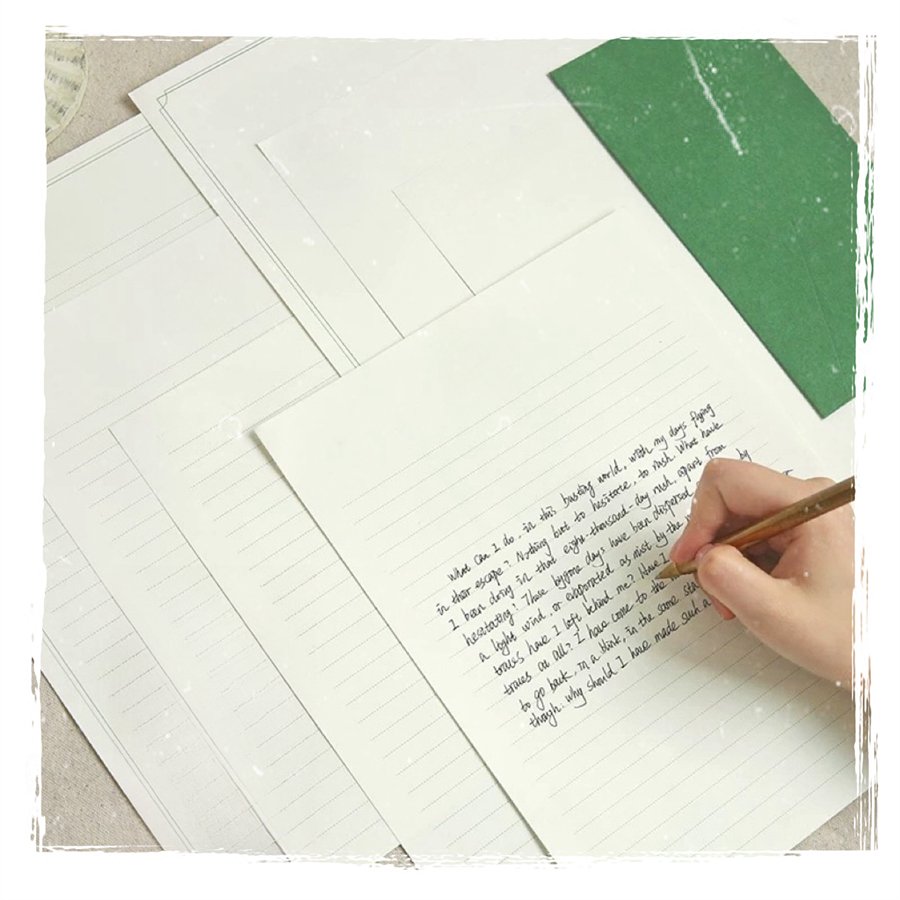 What can I do, in this busting world, with my days flying
in their escape? Nothing but to hesitate, to rush. What have
I been doing in that eight-thousand-day rush, apart from
hesitating? Those bygone days have been dispersed by
a light wind, or evaporated as mist by the
traces have I left behind me? Have I
traces at all? I have come to the
to go back, in a blink, in the same
though. why should I have made such a